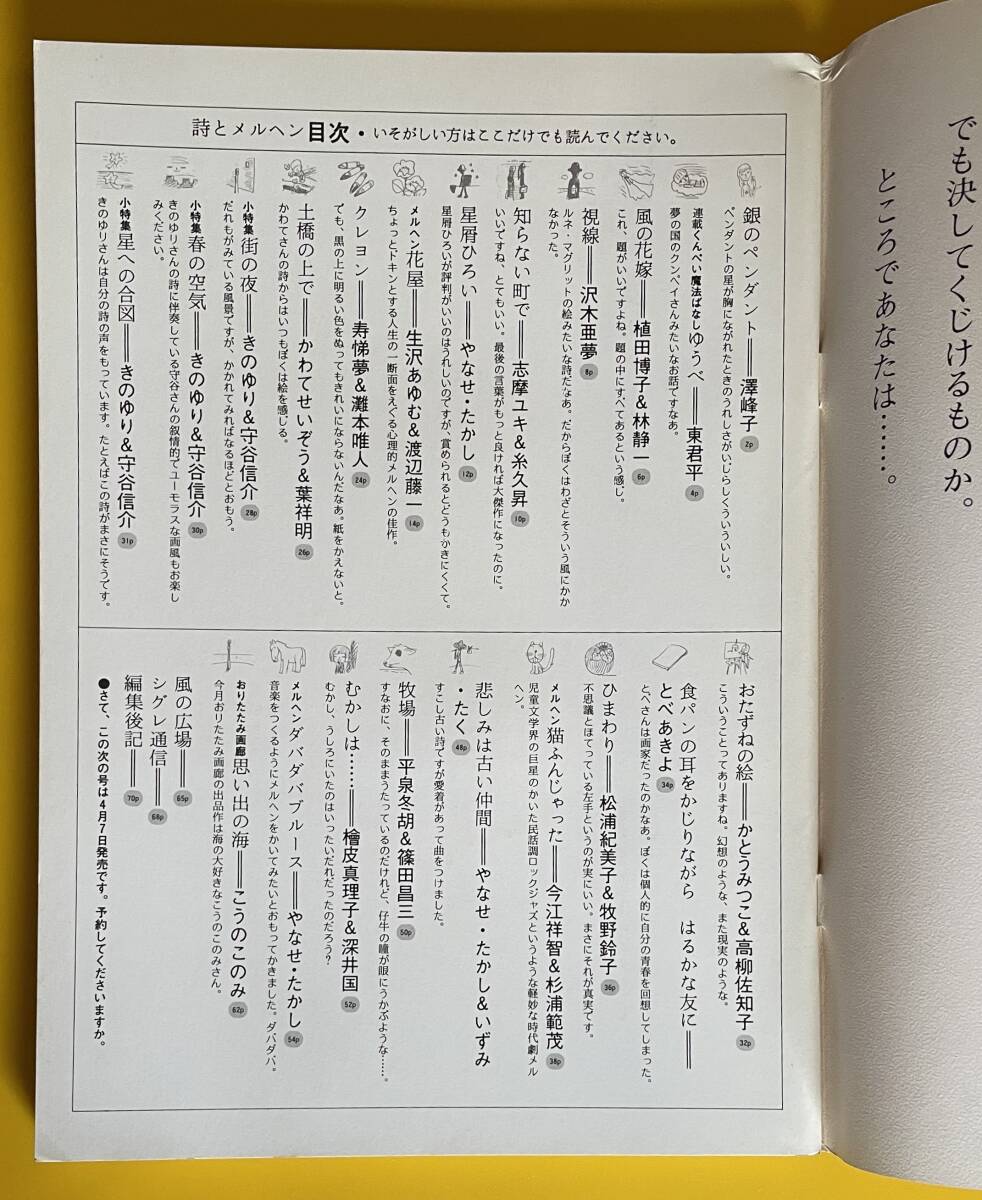 でも決してくじけるものか。
ところであなたは……。
詩とメルヘン目次・いそがしい方はここだけでも読んでください。
銀のペンダント＝＝澤峰子 2p
ペンダントの星が胸にながれたときのうれしさがいじらしくういういしい。
連載くんぺい魔法ばなしゆうべ＝＝東君平 4p
夢の国のクンペイさんみたいなお話ですなあ。
風の花嫁＝＝植田博子＆林静一 6p
これ、題がいいですよね。題の中にすべてあるという感じ。
視線＝＝沢木亜夢 8p
ルネ・マグリットの絵みたいな詩だなあ。だからぼくはわざとそういう風にかか
なかった。
知らない町で＝＝志摩ユキ＆糸久昇 10p
いいですね、とてもいい。最後の言葉がもっと良ければ大傑作になったのに。
星屑ひろい＝＝やなせ・たかし 12p
星屑ひろいが評判がいいのはうれしいのですが、賞められるとどうもかきにくくて。
メルヘン花屋＝＝生沢あゆむ＆渡辺藤一 14p
ちょっとドキンとする人生の一断面をえぐる心理的メルヘンの佳作。
クレヨン＝＝寿悌夢＆灘本唯人 24p
ても、黒の上に明るい色をぬってもきれいにならないんだなあ。紙をかえないと。
土橋の上で＝＝かわてせいぞう＆葉祥明 26p
かわてさんの詩からはいつもぼくは絵を感じる。
小特集街の夜＝＝きのゆり＆守谷信介 28p
だれもがみている風景ですが、かかれてみればなるほどとおもう。
小特集春の空気＝＝きのゆり＆守谷信介 30p
きのゆりさんの詩に伴奏している守谷さんの叙情的でユーモラスな画風もお楽し
みください。
小特集星への合図＝＝きのゆり＆守谷信介 31p
きのゆりさんは自分の詩の声をもっています。たとえばこの詩がまさにそうです。
おたずねの絵＝＝かとうみつこ＆高柳佐知子 32p
こういうことってありますね。幻想のような、また現実のような。
食パンの耳をかじりながら　はるかな友に＝＝
とべあきよ 34p
とべさんは画家だったのかなあ。ぼくは個人的に自分の青春を回想してしまった。
ひまわり＝＝松浦紀美子＆牧野鈴子 36p
不思議とほてっている左手というのが実にいい。まさにそれが真実です。
メルヘン猫ふんじゃった＝＝今江祥智＆杉浦範茂 38p
児童文学界の巨星のかいた民話調ロックジャズというような軽妙な時代劇メル
ヘン。
悲しみは古い仲間＝＝やなせ・たかし＆いずみ
・たく 48p
すこし古い詩ですが愛着があって曲をつけました。
牧場＝＝平泉冬胡＆篠田昌三 50p
すなおに、そのままうたっているのだけれど、仔牛の瞳が眼にうかぶような……。
むかしは……＝＝檜皮真理子＆深井国 52p
むかし、うしろにいたのはいったいだれだったのだろう？
メルヘンダバダバブルース＝＝やなせ・たかし 54p
音楽をつくるようにメルヘンをかいてみたいとおもってかきました。ダバダバ。
おりたたみ画廊思い出の海＝＝こうのこのみ 62p
今月おりたたみ画廊の出品作は海の大好きなこうのこのみさん。
風の広場＝＝65p
シグレ通信＝＝68p
編集後記＝＝70p
●さて、この次の号は4月7日発売です。予約してくださいますか。